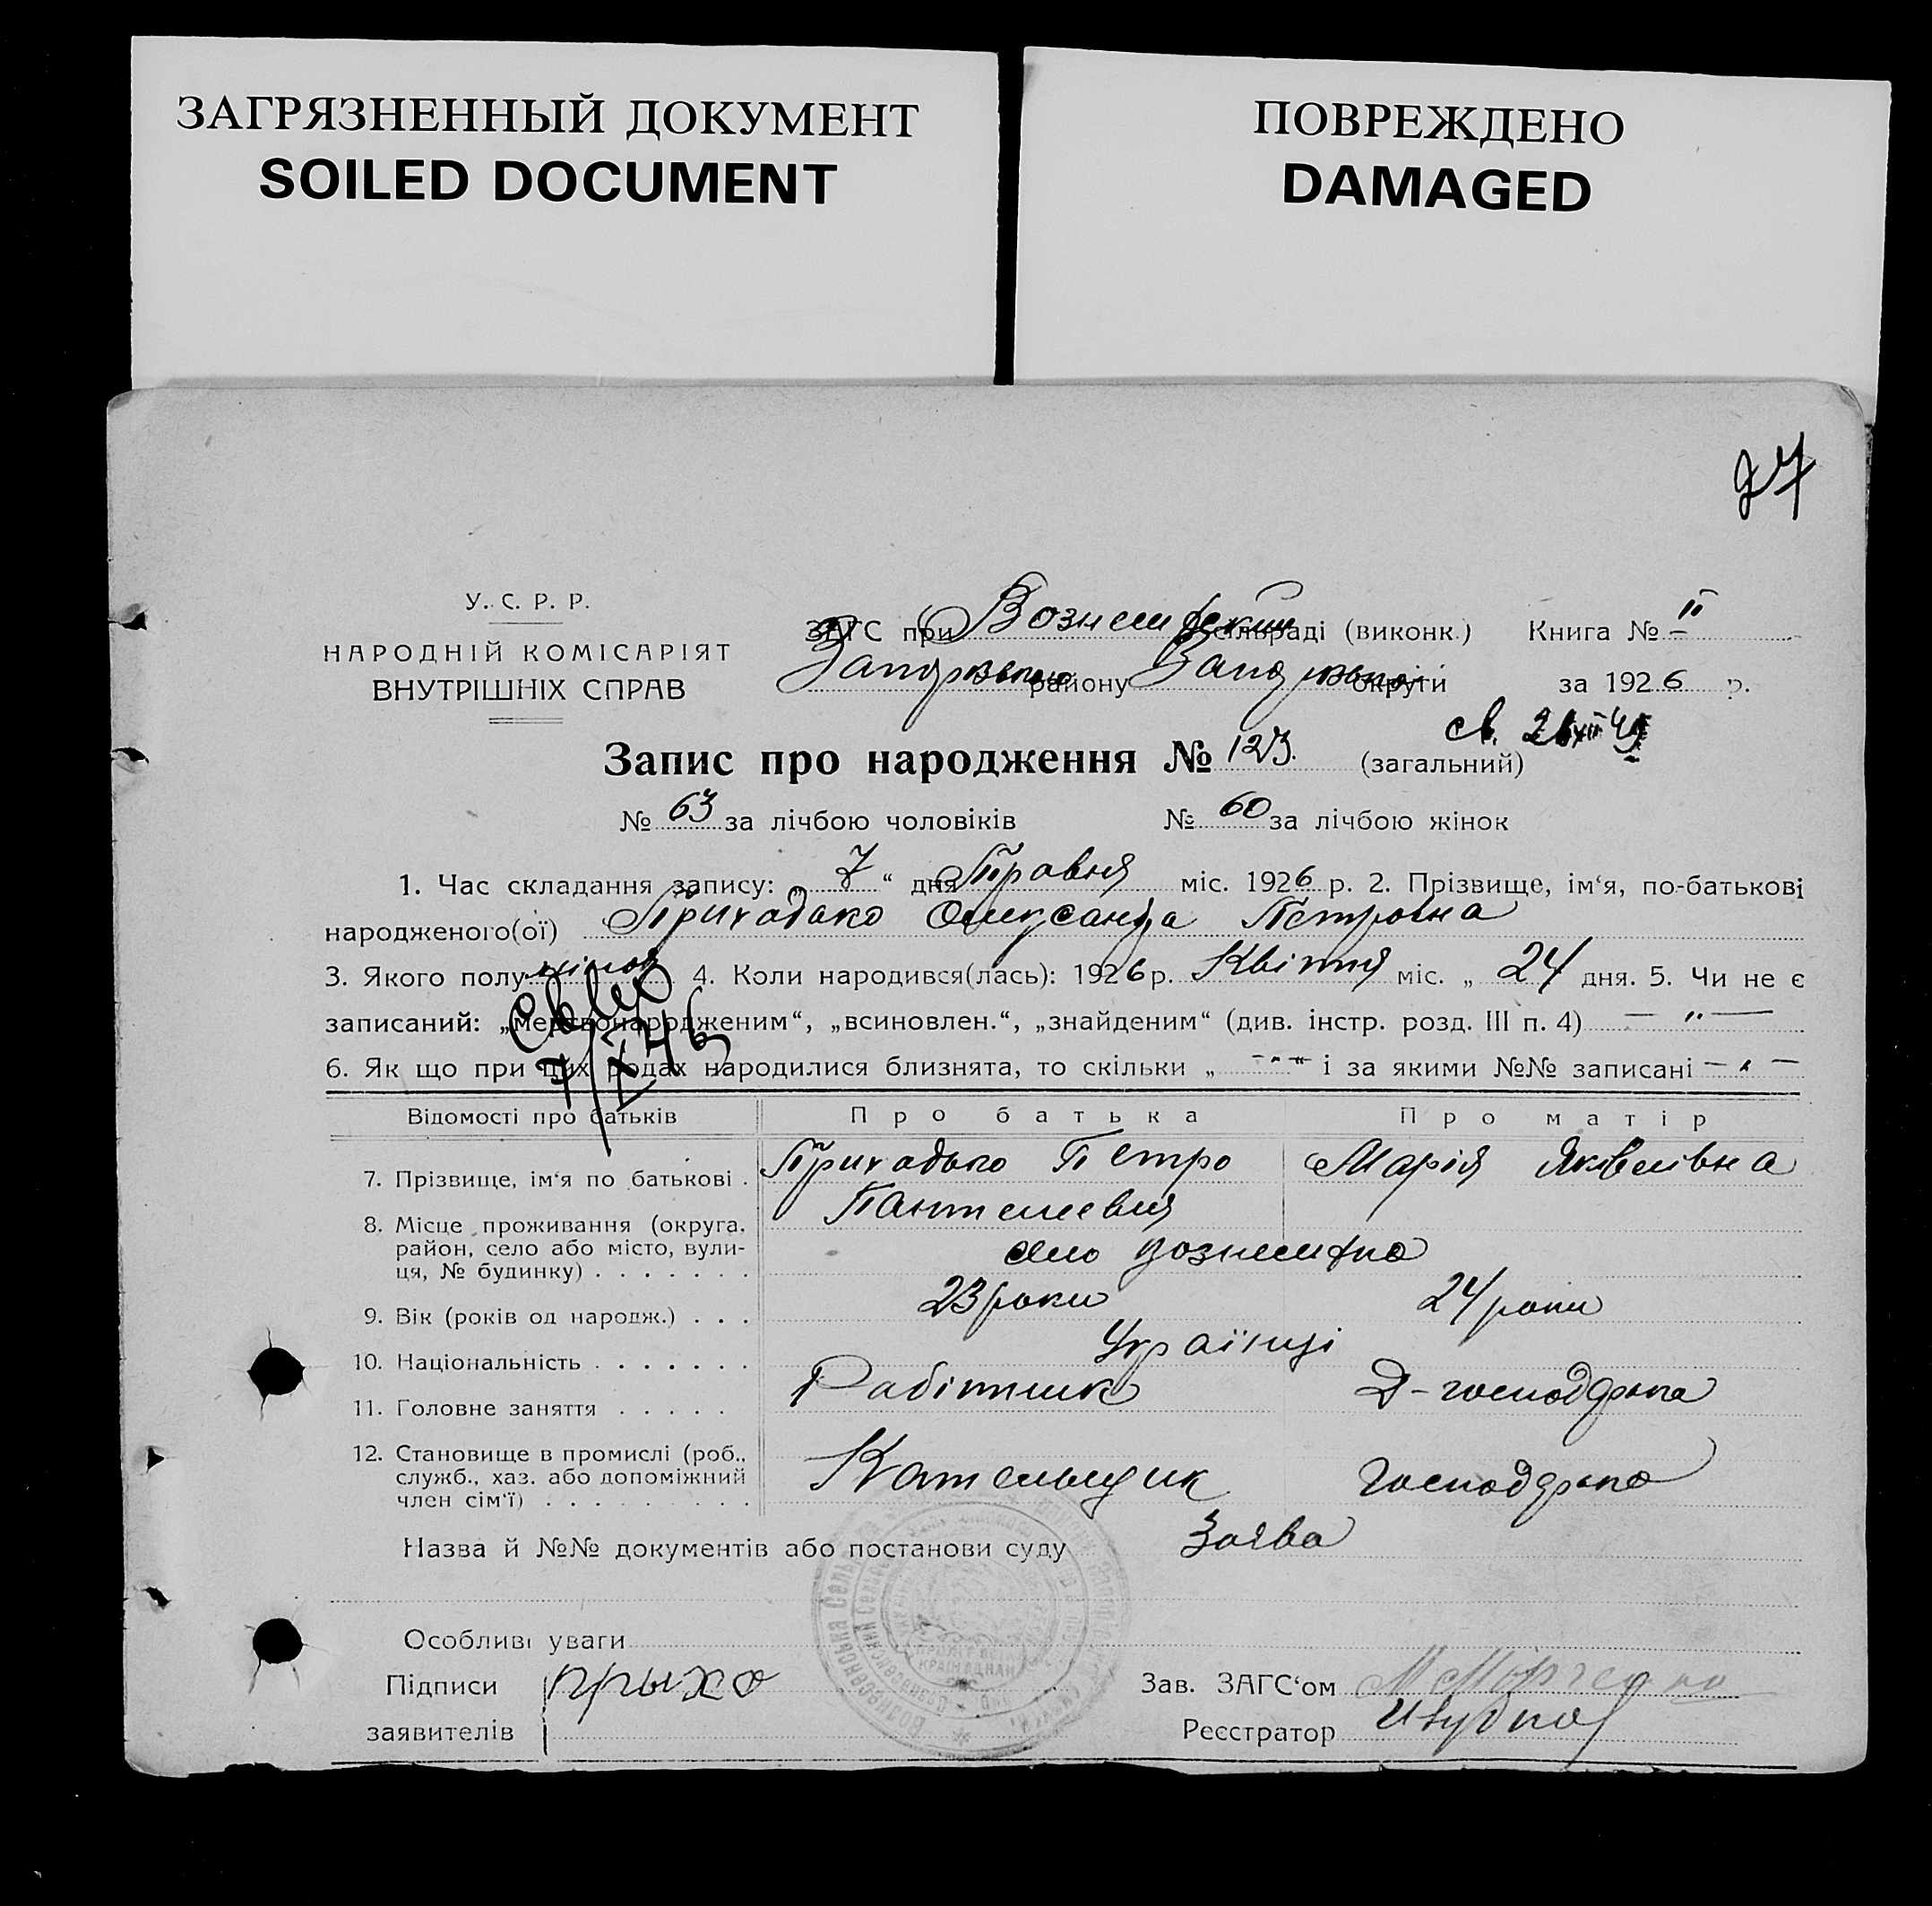 ЗАГРЯЗНЕННЫЙ ДОКУМЕНТ
SOILED DOCUMENT
ПОВРЕЖДЕНО
DAMAGED
27
У. С. Р. Р.
НАРОДНІЙ КОМІСАРІЯТ
ВНУТРІШНІХ СПРАВ
ЗАГС при сільраді (виконк.) Книга № II
району округи за 1926 р.
св.
Запис про народження № 123. (загальний)
№ 63 за лічбою чоловіків № 60 за лічбою жінок
1. Час складання запису: „ 7 “ дня Травня міс. 1926 р. 2. Прізвище, ім‘я, по-батькові
народженого(ої) Приходько Олександра Петровна
3. Якого полу жіноч 4. Коли народився(лась): 1926 р. Квітня міс. „ 24 дня. 5. Чи не є
записаний: „мертвонародженим“, „всиновлен.“, „знайденим“ (див. інстр. розд. III п. 4) — „ —
6. Як що при цих родах народилися близнята, то скільки „ - „ - “ і за якими №№ записані — „ —
7/X 46
Відомості про батьків Про батька Про матір
7. Прізвище, ім‘я по батькові . Приходько Петро Марія Яковлівна
Пантелеевич
8. Місце проживання (округа, район, село або місто, вули-
ця, № будинку) . . . . . . . село
9. Вік (років од народж.) . . . 23 роки 24 роки
10. Національність . . . . . . . Українці
11. Головне заняття . . . . . Робітник Д-господарка
12. Становище в промислі (роб.,
служб., хаз. або допоміжний
член сім‘ї) . . . . . . . . . Котельщик Господарка
Назва й №№ документів або постанови суду Заява
Особливі уваги
Підписи прыхо Зав. ЗАГС‘ом
заявителів Реєстратор